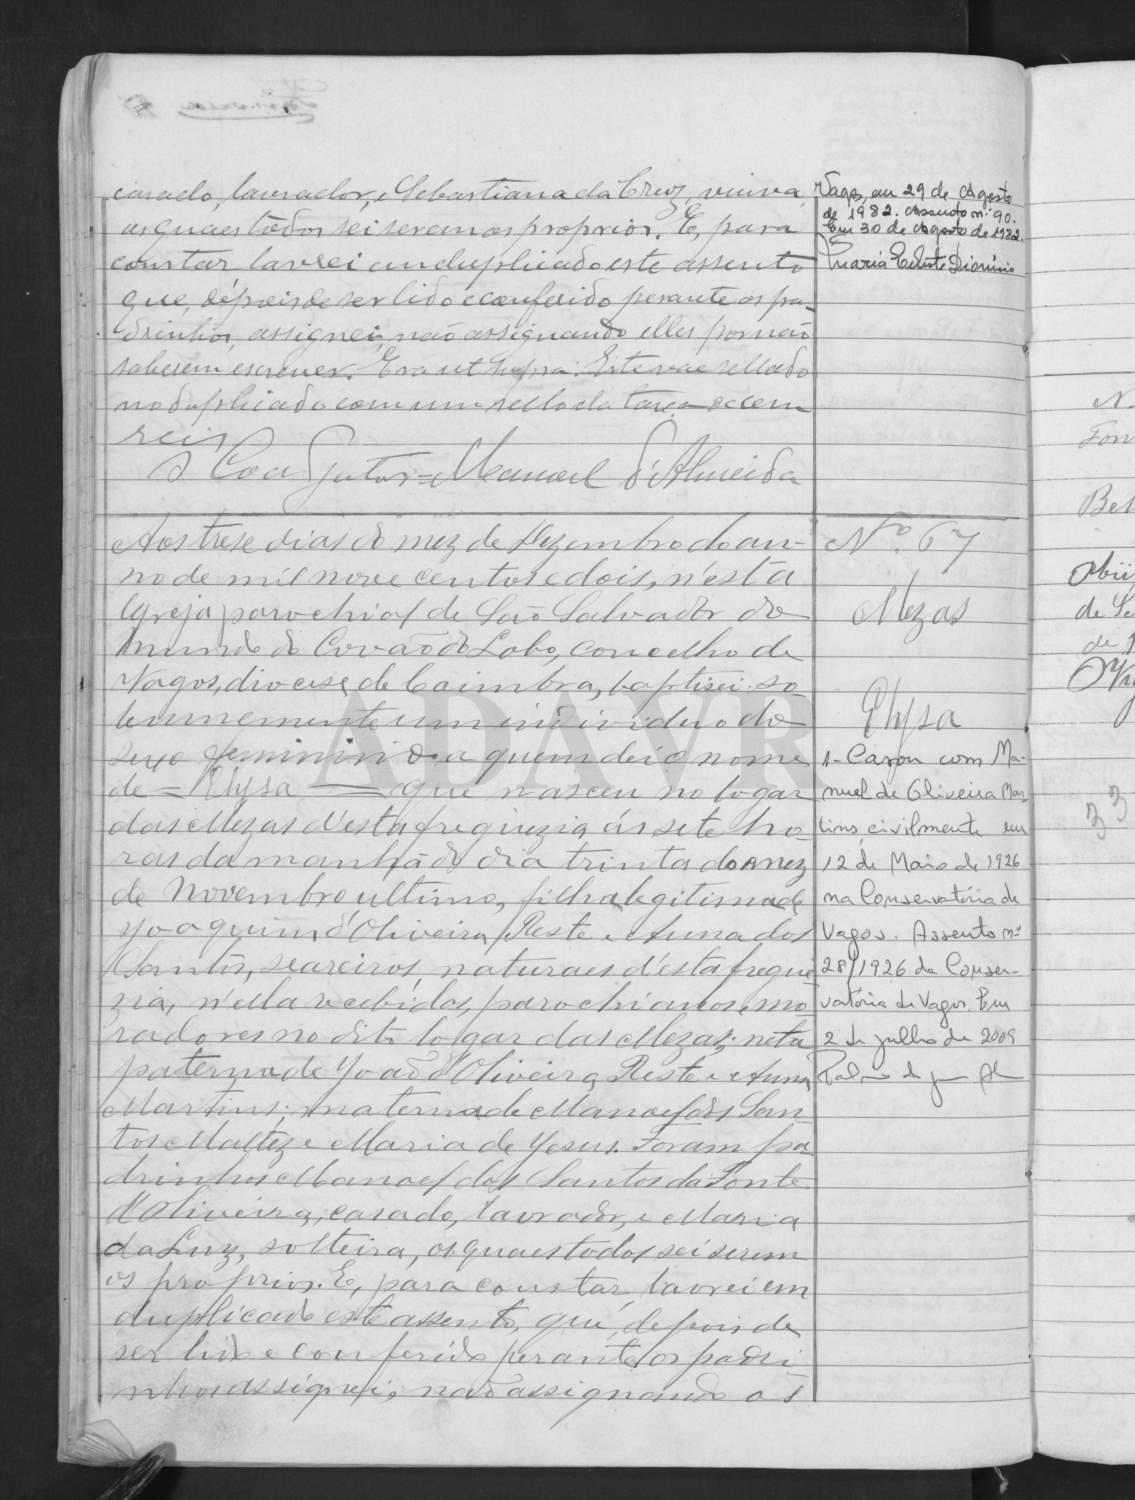 casado, lavrador, e Sebastiana da Cruz, viuva,
os quaes todos sei serem os proprios. E, para
constar lavrei em duplicado este assento
que, depois de ser lido e conferido perante os pa-
drinhos, assignei, não assignando elles por não
saberem escrever. Era ut supra. Este vae sellado
no duplicado com um sello da taxa de cem
reis
O Coadjutor = Manoel d'Almeida
Vagos, em 29 de Agosto
de 1982. Assento nº 90.
Em 30 de Agosto de 1982.
Maria Celeste Dionísio
Aos trese dias do mez de Dezembro do an-
no de mil nove centos e dois, n'esta
Igreja parochial de São Salvador do
mundo do Covão do Lobo, concelho de
Vagos, diocese de Coimbra, baptisei so-
lemnemente um individuo do
sexo feminino a quem dei o nome
de = Elysa = que nasceu no logar
das Mezas d'esta freguezia ás sete ho-
ras da manhã do dia trinta do mez
de Novembro ultimo, filha legitima de
Joaquim d'Oliveira Reste e Anna dos
Santos, seareiros, naturaes d'esta fregue-
zia, n'ella recebidos, parochianos e mo-
radores no dito logar das Mezas; neta
paterna de João d'Oliveira Reste e Anna
Martins; materna de Manoel dos San-
tos Maltez e Maria de Jesus. Foram pa-
drinhos Manoel dos Santos da Fonte
d'Oliveira, casado, lavrador, e Maria
da Luz, solteira, os quaes todos sei serem
os proprios. E, para constar, lavrei em
duplicado este assento, que, depois de
ser lido e conferido perante os padri-
nhos assignei, não assignando os
Nº 67
Mezas
Elysa
1- Casou com Ma-
nuel de Oliveira Mar-
tins civilmente em
12 de Maio de 1926
na Conservatória de
Vagos. Assento nº
28/1926 da Conser-
vatória de Vagos. Em
2 de julho de 2009
ADAVR
N.
Fon
Bel
de
33